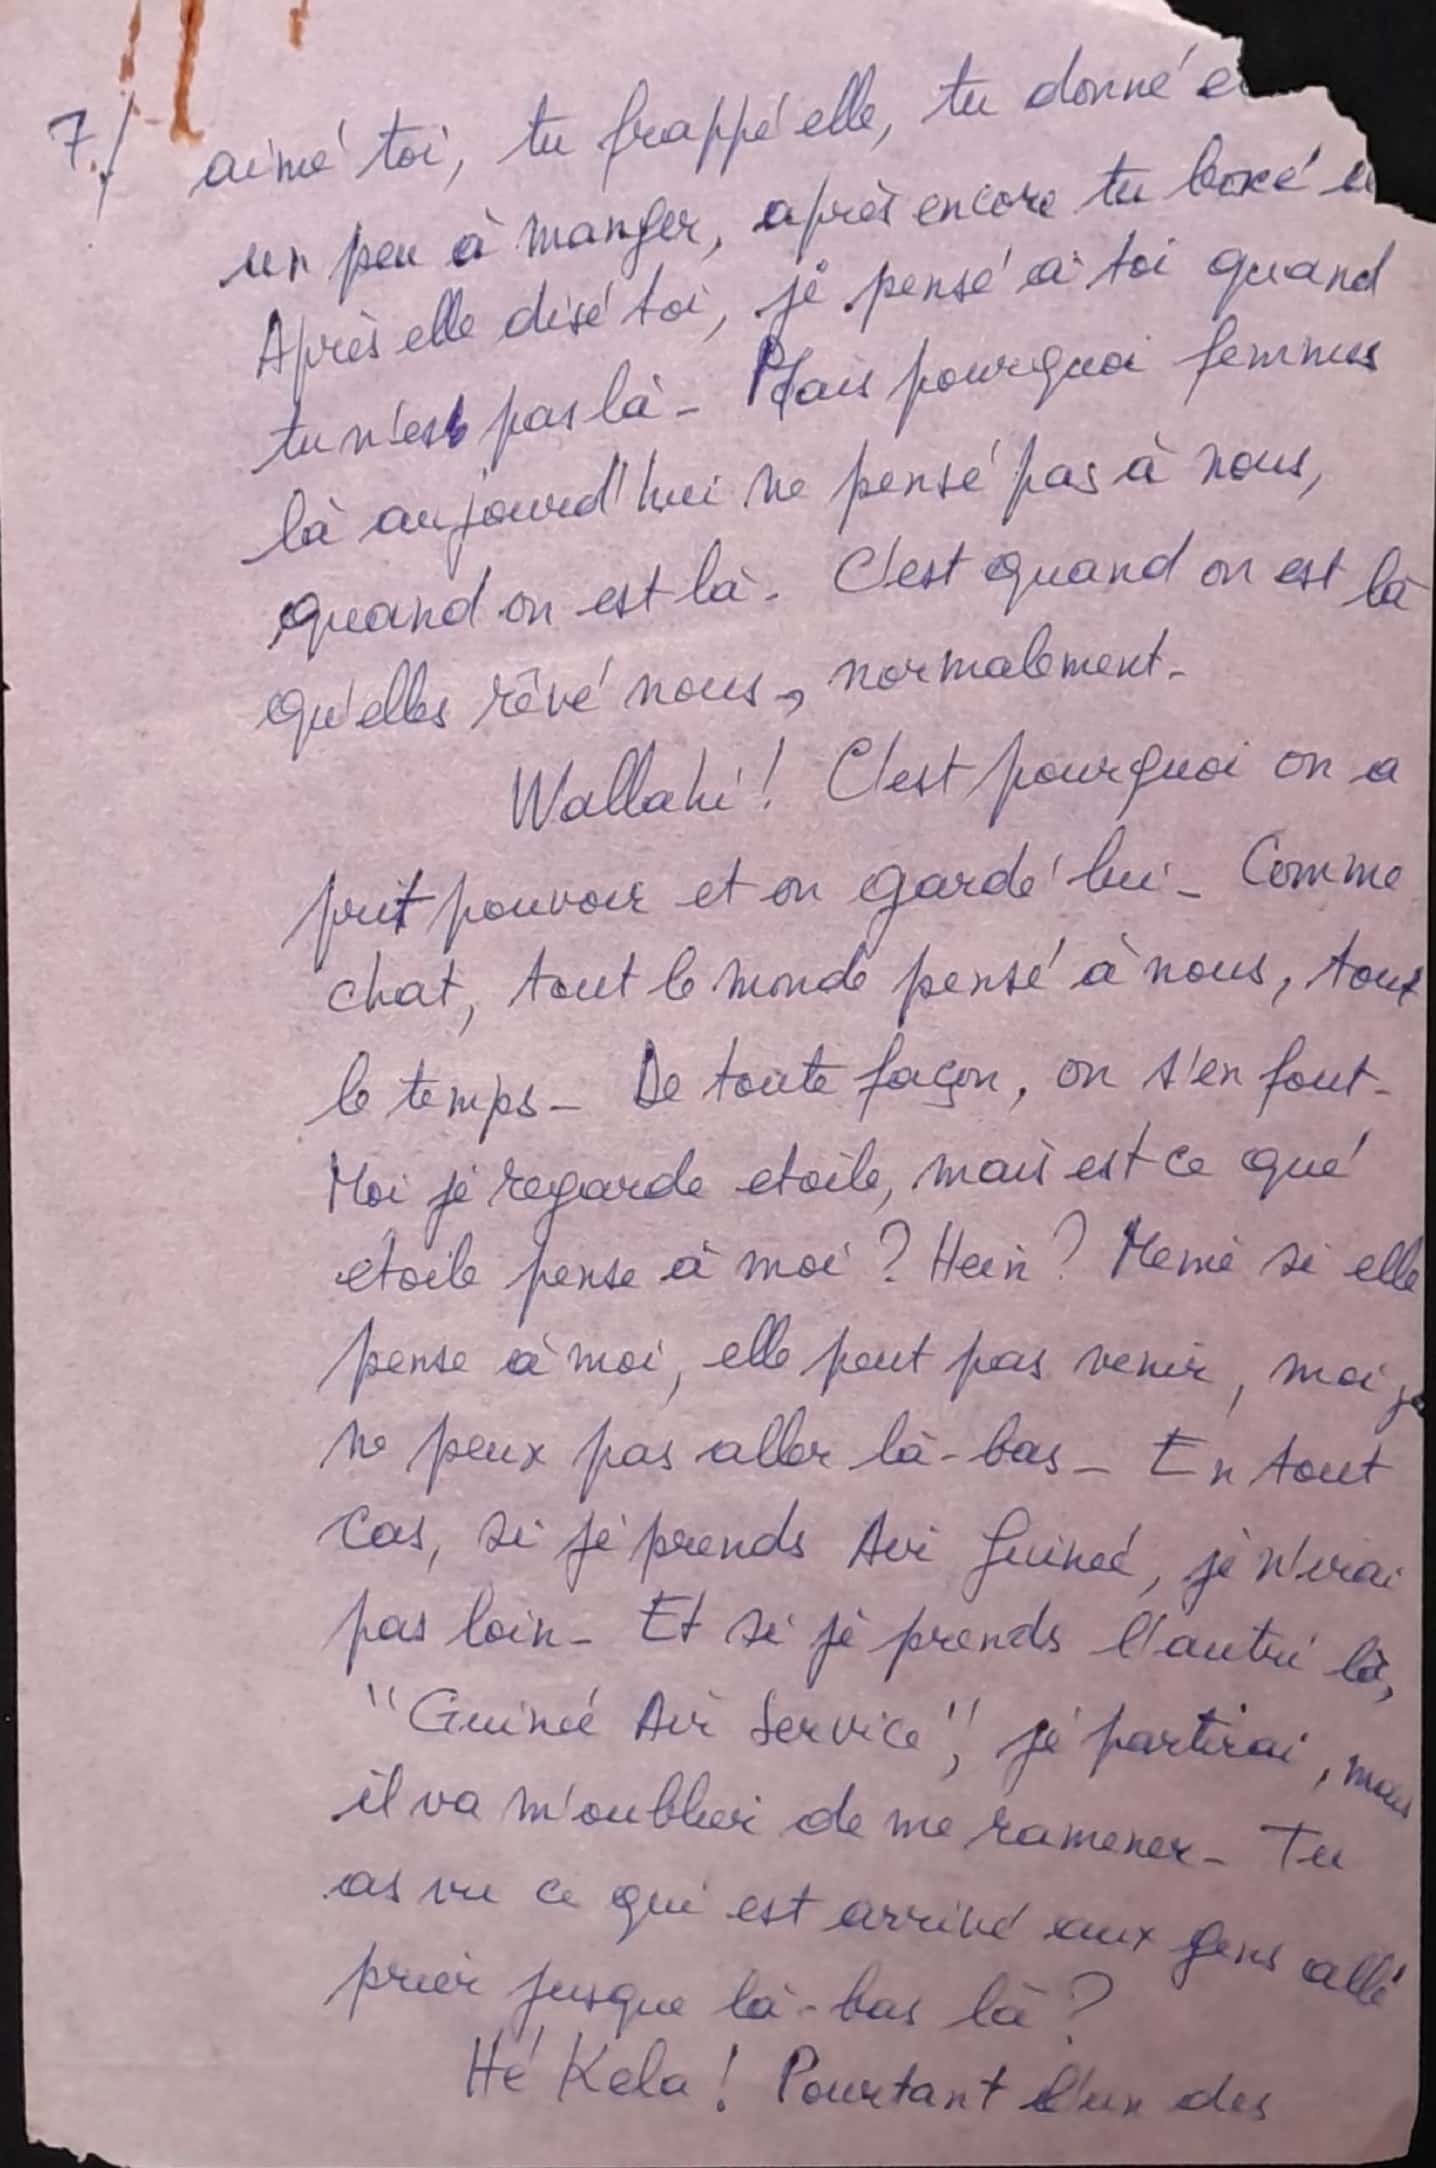 7./ aimé toi, tu frappé elle, tu donné
un peu à manger, après encore tu boxé
Après elle disé toi, jé pensé à toi quand
tu n'est pas là - Mais pourquoi femmes
là aujourd'hui ne pensé pas à nous,
quand on est là - C'est quand on est là
qu'elles rêvé nous -, normalement -
Wallahi ! C'est pourquoi on a
prit pouvoir et on gardé lui - Comme
chat, tout le monde pensé à nous, tout
le temps - De toute façon, on s'en fout -
Moi jé regarde etoile, mais est ce qué
etoile pense à moi ? Hein ? Memé si elle
pense à moi, elle peut pas venir, moi je
ne peux pas aller là-bas - En tout
cas, si jé prends Air Guineé, jé n'irai
pas loin - Et si jé prends l'autré là,
"Guineé Air Service", jé partirai, mais
il va m'oublier de me ramener - Tu
as vu ce qui est arrivé aux gens allé
prier jusque là-bas là ?
Hé Kéla ! Pourtant l'un des